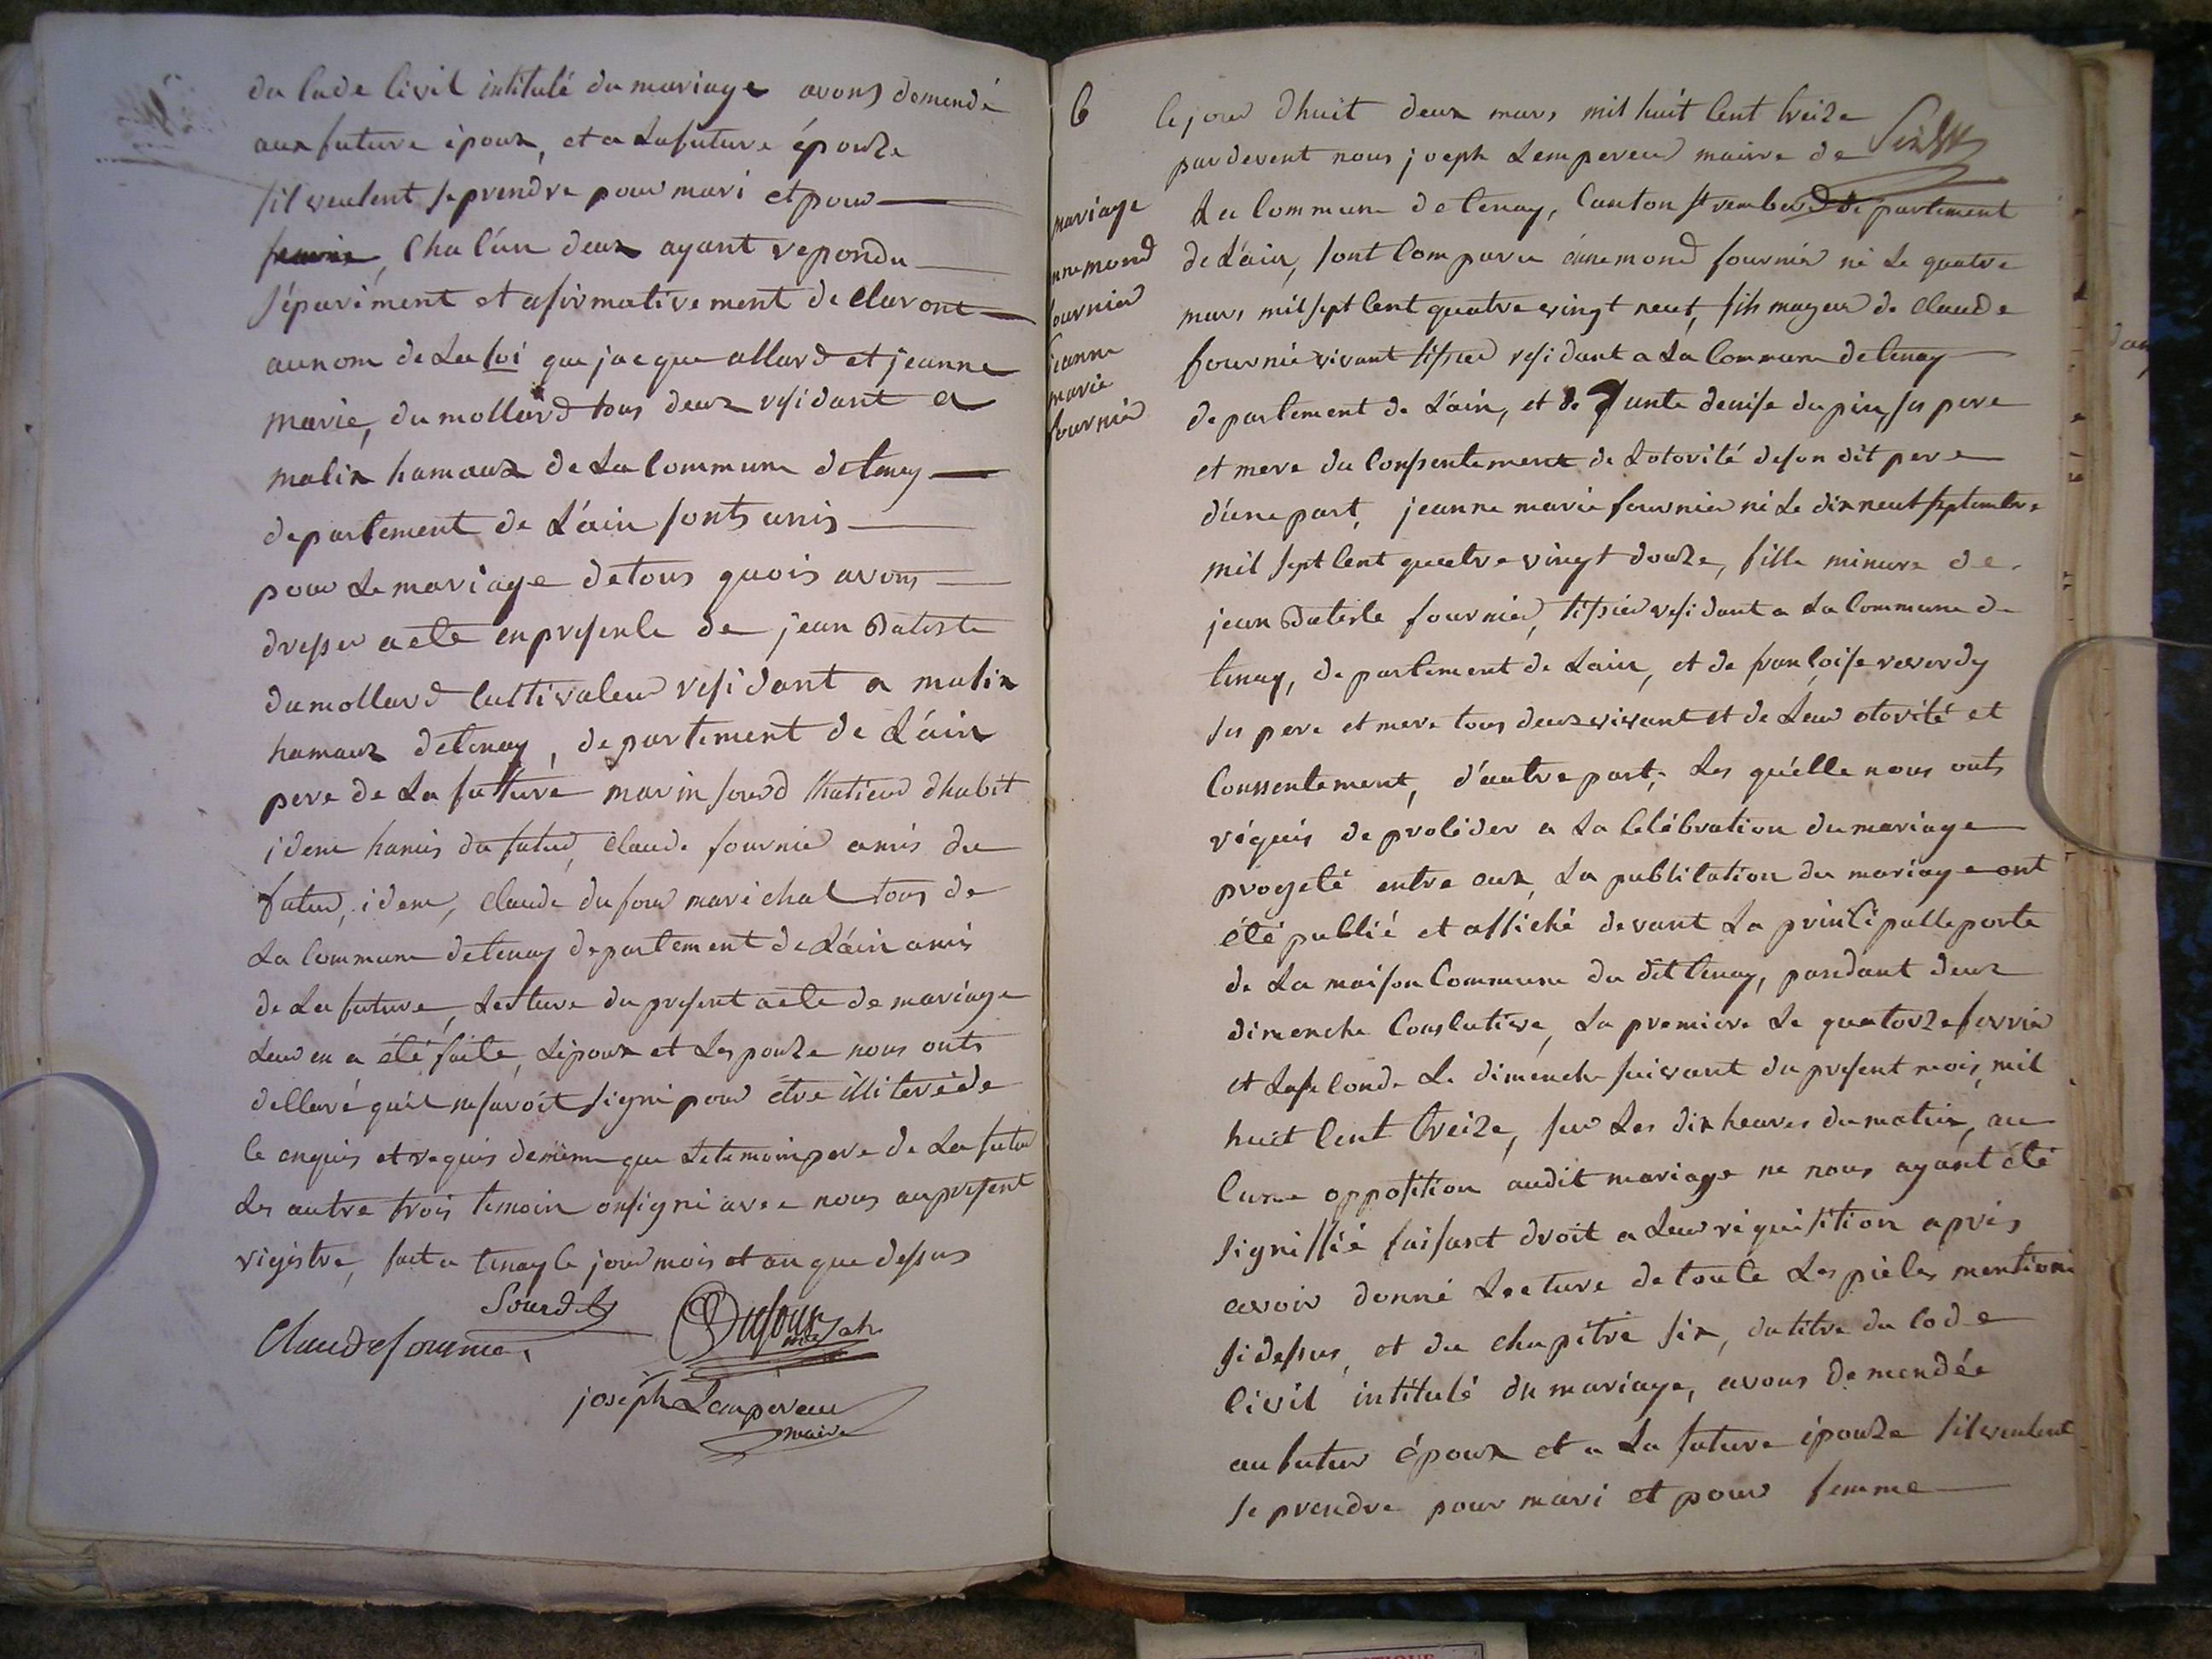 du Code Civil intitulé du mariage avons demendé
aux future époux, et a La future épouze
sil veulent se prendre pour mari et pour
femme, Chacun deux ayant repondu
séparément et afirmativement declaront
au nom de La loi que jacque allard et jeanne
marie, dumollard tous deux residant a
malix hamaux de La Commune detenay
departement de L'ain sonts unis
pour Le mariage de tous quois avons
dresser acte en presence de jean Batiste
dumollard Cultivateur residant a malix
hamaux detenay, departement de L'ain
pere de La future marin sourd d'habit
idem hamis du futur, Claude fournier amis du
futur, idem, Claude dufour marichal tous de
La Commune detenay departement de L'ain amis
de La future, Lecture du present acte de mariage
Leur en a été faite, Lépoux et Les pouze nous onts
declaré qu'il ne savoit signé pour etre illiteré de
Ce enquis et requis de même que Le temoin pere de La futur
Les autre trois temoin on signé avec nous au present
registre, fait a tenay le jour mois et an que dessus
Sourd
Claude fournier
Dufour
joseph Lempereur
maire
6
mariage
fournier
jeanne
marie
fournier
Ce jour dhuit deux mars mil huit Cent treize
par devent nous joseph Lempereur maire de
La Commune de tenay, Canton st rembert departement
de L'ain, sont Comparu ennemond fournier né Le quatre
mars mil sept Cent quatre vingt neuf, fils mageur de Claude
fournié vivant tissier residant a La Commune detenay
departement de L'ain, et de junte denise dupin, ses pere
et mere du Consentement de Lotorité de son dit pere
d'une part, jeanne marie fournier né Le dix neuf septembre
mil sept Cent quatre vingt douze, fille minure de
jean Batiste fournier, tissier residant a La Commune de
tenay, departement de Lain, et de francoise reverdy
ses pere et mere tous deux vivant et de Leur otorité et
Conssentement, d'autre part, Les qu'elle nous onts
réquis de proceder a La Celébration du mariage
progeté entre eux, La publication du mariage ont
été publié et affiché devant La principalle porte
de La maison Commune du dit tenay, pandant deux
dimenche Conscutive, La premiere Le quatorze fevrié
et La seconde Le dimenche suivant du present mois, mil
huit Cent treize, sur Les dix heures du matin, au
Cune oppotition audit mariage ne nous ayant été
signiffié faisant droit a Leur réquisition après
avoir donné Lecture de toute Les pièces mentioné
si dessus, et du chapitre six, du titre du Code
Civil intitulé du mariage, avons demendée
au futur époux et a La future épouze sil veulent
se prendre pour mari et pour femme